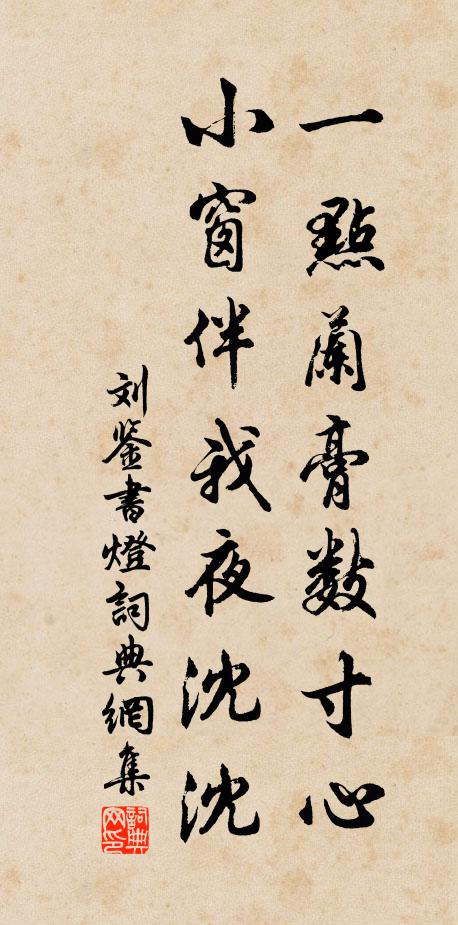 一點蘭膏數寸心
小窗伴我夜沈沈
刘鉴書燈詞典網集
詞典网印